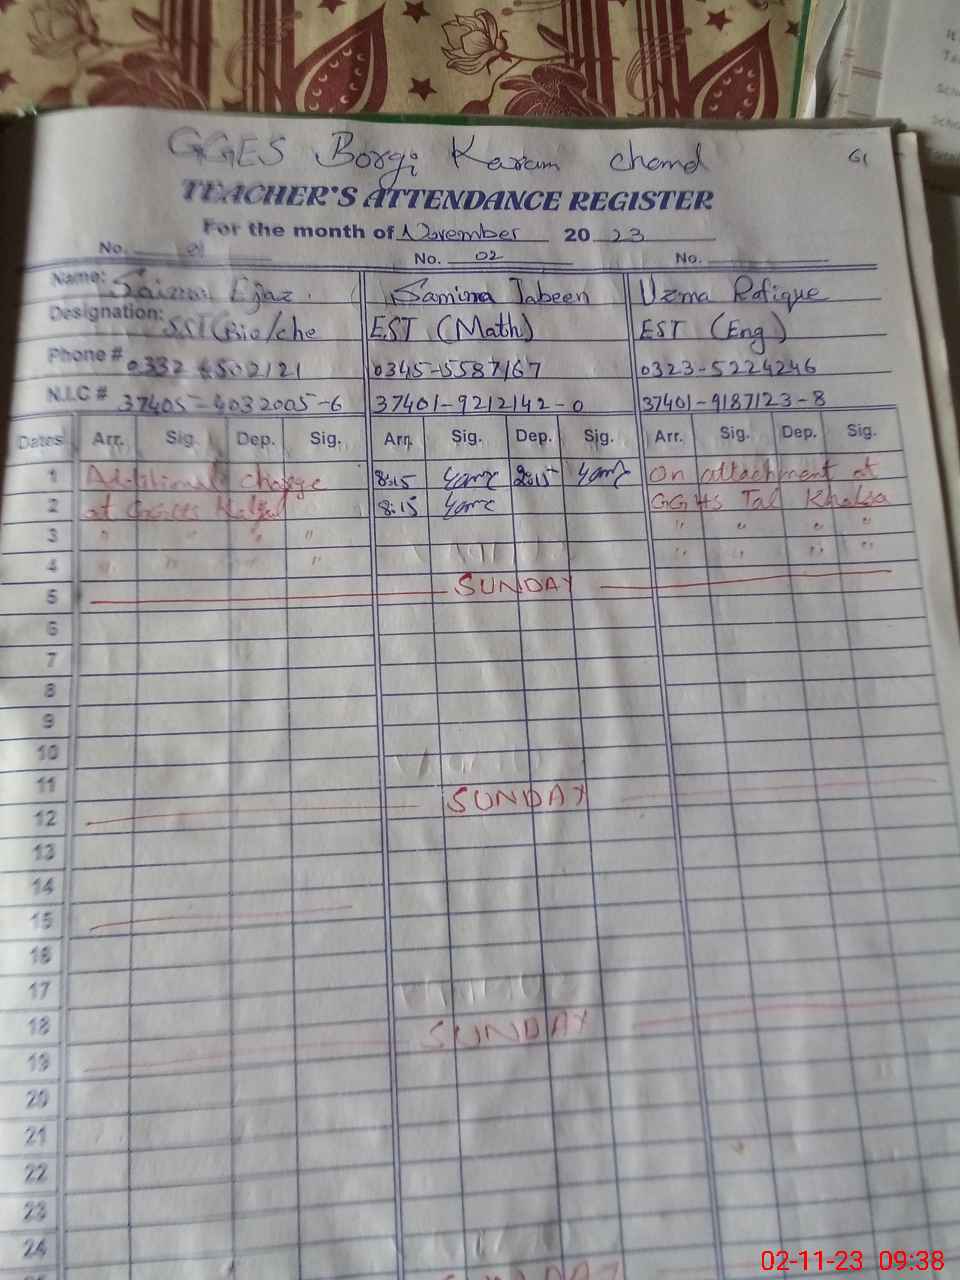 GGES Borgi Karam chand 61
TEACHER'S ATTENDANCE REGISTER
For the month of November 20 23
No. 01 No. 02 No.
Name: Saima Ejaz. Samina Jabeen Uzma Rafique
Designation: SST (Bio/che EST (Math) EST (Eng)
Phone # 0332 4502121 0345-5587167 0323-5224246
N.I.C # 37405-4032005-6 37401-9212142-0 37401-9187123-8
Dates Arr. Sig. Dep. Sig. Arr. Sig. Dep. Sig. Arr. Sig. Dep. Sig.
1 Additional charge 8:15 2:15 On attachment at
2 at GGHS 8:15 GGHS Tal Khalsa
3 " " " " " " " "
4 " " " " " " " "
5 SUNDAY
6
7
8
9
10
11
12 SUNDAY
13
14
15
16
17
18
19 SUNDAY
20
21
22
23
24
SUNDAY
02-11-23 09:38